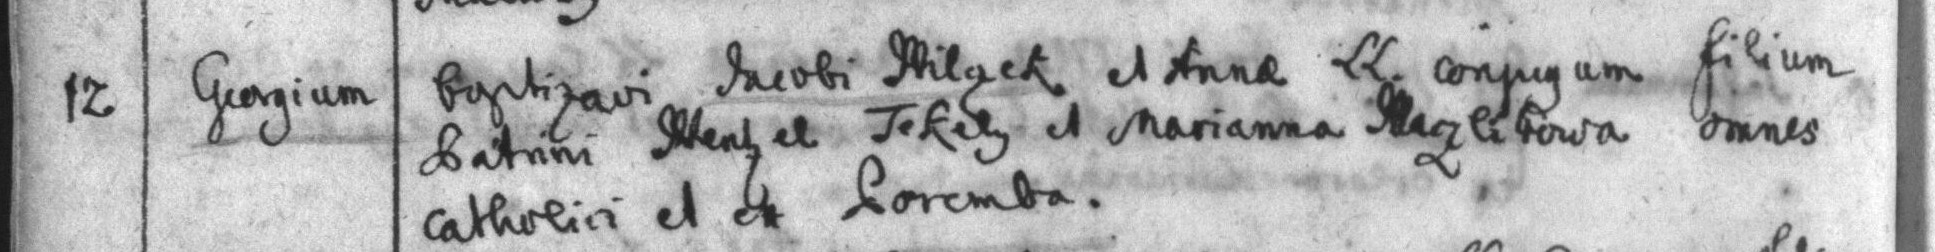 12 Georgium baptizavi Jacobi Wilczek et Annæ LL. conjugum filium
Patrini Wentzel Tekely et Marianna omnes
catholici et ex Poremba.